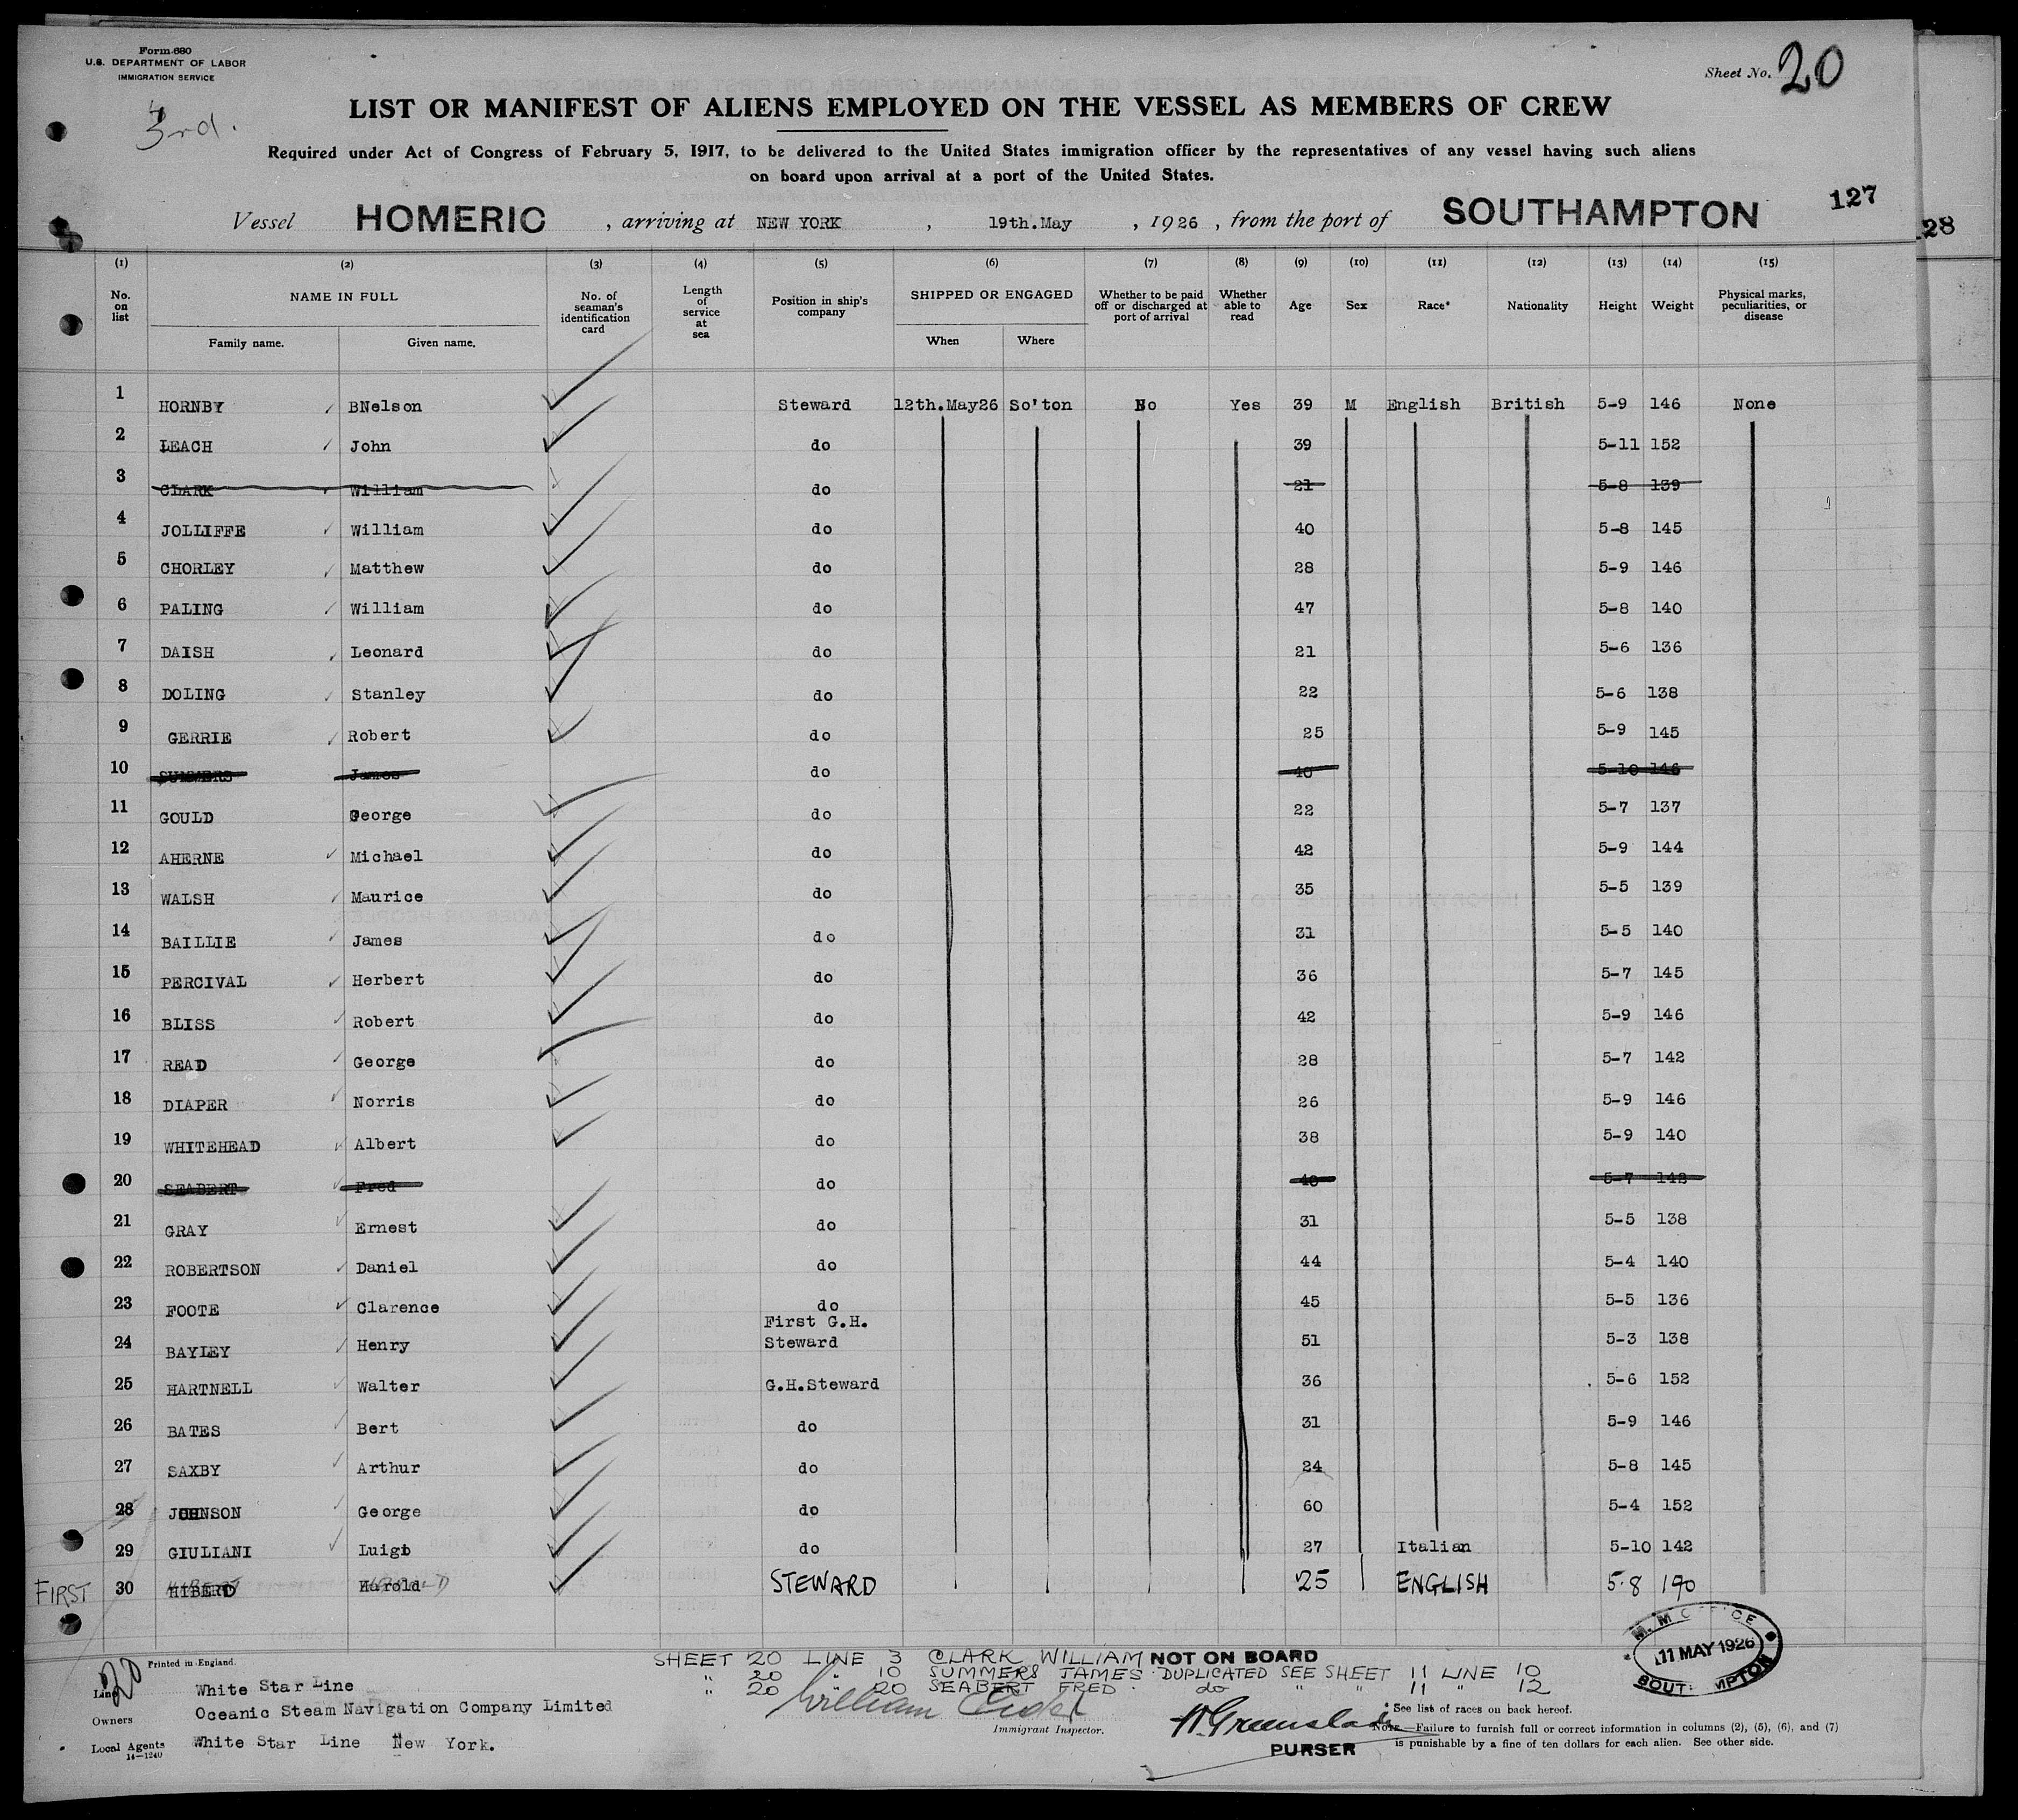 Form 680
U.S. DEPARTMENT OF LABOR
IMMIGRATION SERVICE
Sheet No. 20
3rd.
LIST OR MANIFEST OF ALIENS EMPLOYED ON THE VESSEL AS MEMBERS OF CREW
Required under Act of Congress of February 5, 1917, to be delivered to the United States immigration officer by the representatives of any vessel having such aliens
on board upon arrival at a port of the United States.
127
28
Vessel HOMERIC , arriving at NEW YORK , 19th.May , 1926 , from the port of SOUTHAMPTON
(1) (2) (3) (4) (5) (6) (7) (8) (9) (10) (11) (12) (13) (14) (15)
No. on list NAME IN FULL No. of seaman's identification card Length of service at sea Position in ship's company SHIPPED OR ENGAGED Whether to be paid off or discharged at port of arrival Whether able to read Age Sex Race* Nationality Height Weight Physical marks, peculiarities, or disease
Family name. Given name. When Where
1 HORNBY BNelson Steward 12th.May26 So'ton No Yes 39 M English British 5-9 146 None
2 LEACH John do 39 5-11 152
3 CLARK William do 21 5-8 139
4 JOLLIFFE William do 40 5-8 145
5 CHORLEY Matthew do 28 5-9 146
6 PALING William do 47 5-8 140
7 DAISH Leonard do 21 5-6 136
8 DOLING Stanley do 22 5-6 138
9 GERRIE Robert do 25 5-9 145
10 SUMMERS James do 40 5-10 146
11 GOULD George do 22 5-7 137
12 AHERNE Michael do 42 5-9 144
13 WALSH Maurice do 35 5-5 139
14 BAILLIE James do 31 5-5 140
15 PERCIVAL Herbert do 36 5-7 145
16 BLISS Robert do 42 5-9 146
17 READ George do 28 5-7 142
18 DIAPER Norris do 26 5-9 146
19 WHITEHEAD Albert do 38 5-9 140
20 SEABERT Fred do 40 5-7 142
21 GRAY Ernest do 31 5-5 138
22 ROBERTSON Daniel do 44 5-4 140
23 FOOTE Clarence do 45 5-5 136
24 BAYLEY Henry First G.H. Steward 51 5-3 138
25 HARTNELL Walter G.H.Steward 36 5-6 152
26 BATES Bert do 31 5-9 146
27 SAXBY Arthur do 24 5-8 145
28 JOHNSON George do 60 5-4 152
29 GIULIANI Luigi do 27 Italian 5-10 142
FIRST 30 HIBERD Harold STEWARD 25 ENGLISH 5.8 190
SHEET 20 LINE 3 CLARK WILLIAM NOT ON BOARD
" 20 " 10 SUMMERS JAMES DUPLICATED SEE SHEET 11 LINE 10
" 20 20 SEABERT FRED. do " " 11 " 12
M.M OFFICE
11 MAY 1926
Printed in England.
20
Line White Star Line
Owners Oceanic Steam Navigation Company Limited
Local Agents White Star Line New York.
14-1240
William
Immigrant Inspector.
PURSER
* See list of races on back hereof.
NOTE.—Failure to furnish full or correct information in columns (2), (5), (6), and (7)
is punishable by a fine of ten dollars for each alien. See other side.